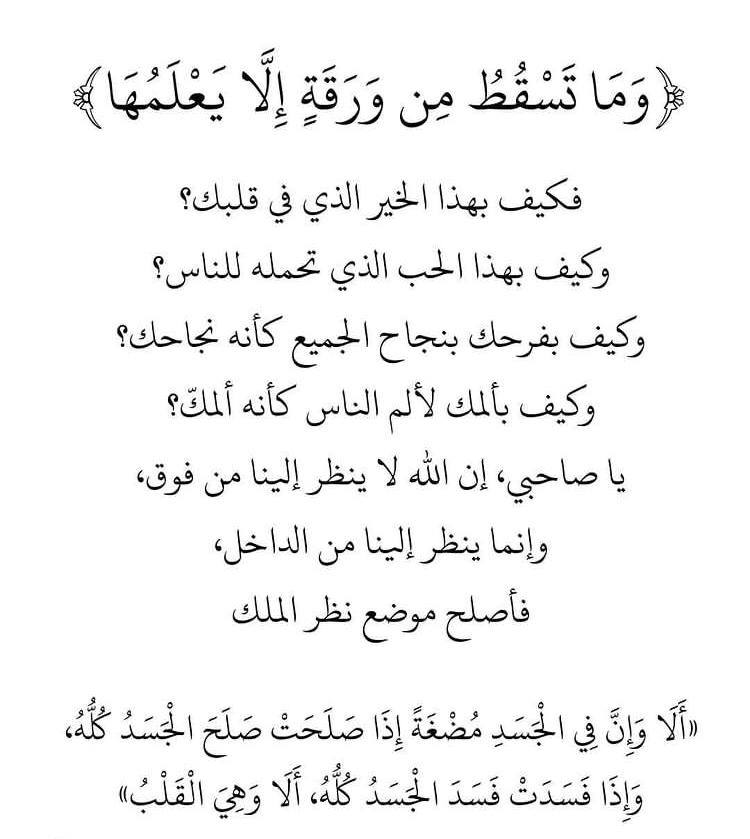 ﴿وَمَا تَسْقُطُ مِن وَرَقَةٍ إِلَّا يَعْلَمُهَا﴾
فكيف بهذا الخير الذي في قلبك؟
وكيف بهذا الحب الذي تحمله للناس؟
وكيف بفرحك بنجاح الجميع كأنه نجاحك؟
وكيف بألمك لألم الناس كأنه ألمكّ؟
يا صاحبي، إن الله لا ينظر إلينا من فوق،
وإنما ينظر إلينا من الداخل،
فأصلح موضع نظر الملك
«أَلَا وَإِنَّ فِي الْجَسَدِ مُضْغَةً إِذَا صَلَحَتْ صَلَحَ الْجَسَدُ كُلُّهُ،
وَإِذَا فَسَدَتْ فَسَدَ الْجَسَدُ كُلُّهُ، أَلَا وَهِيَ الْقَلْبُ»